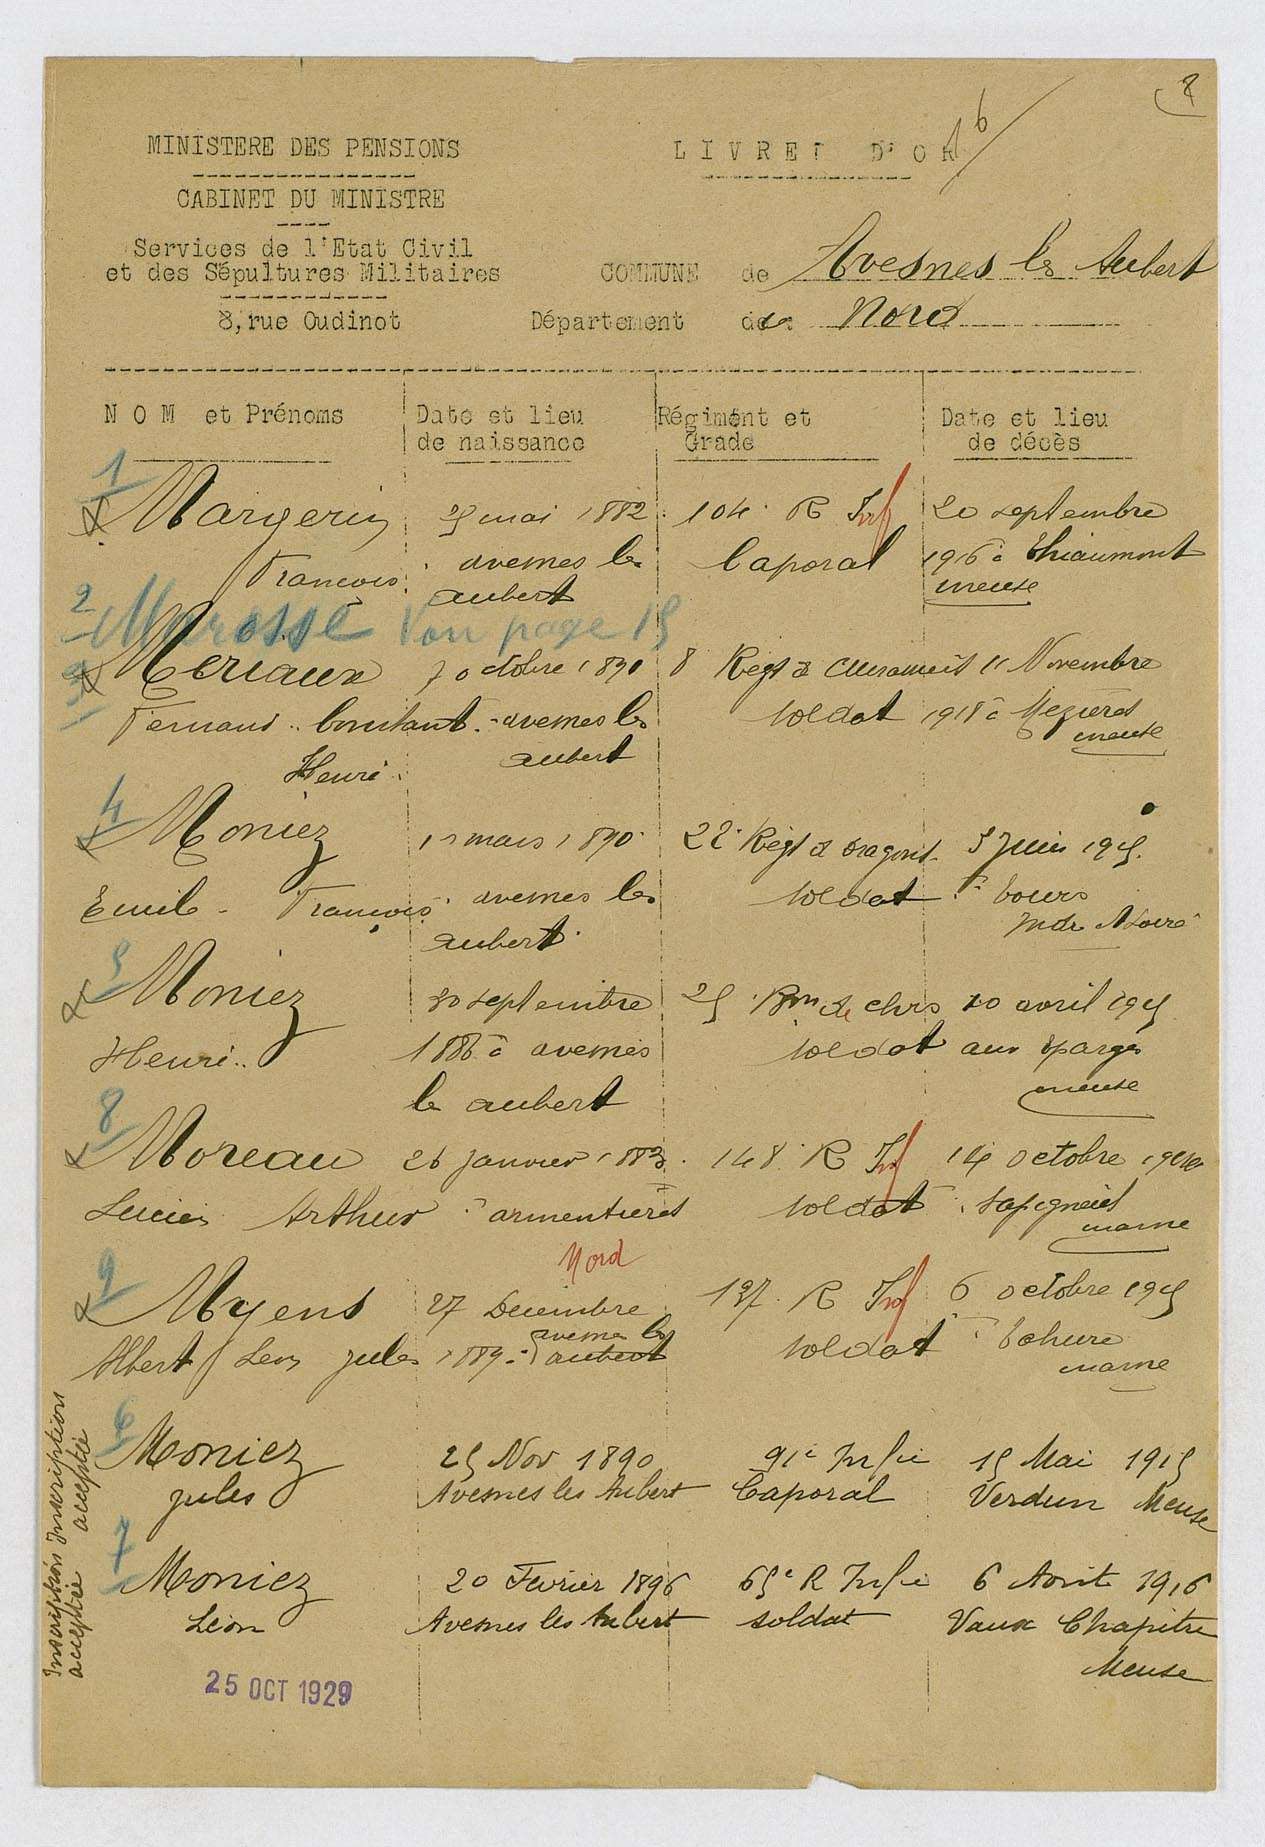 8
MINISTERE DES PENSIONS
CABINET DU MINISTRE
Services de l'Etat Civil
et des Sépultures Militaires
8, rue Oudinot
LIVRET D'OR
COMMUNE de Avesnes les Aubert
Département du Nord
NOM et Prénoms
Date et lieu
de naissance
Régiment et
Grade
Date et lieu
de décès
1
Margerin 25 mai 1882 104 R Inf 20 septembre
François avesnes les Caporal 1916 à Thiaumont
aubert meuse
2 Marosse Voir page 15
3
Meriaux 7 octobre 1890 8 Regt de 11 Novembre
Fernand Constant avesnes les soldat 1918 à Mezières
Henri aubert meuse
4
Moniez mars 1890 22 Régt de dragons 5 Juin 1915
Emile François avesnes les soldat à Tours
aubert Indre & Loire
5
Moniez 30 septembre 25 Bon de chrs 10 avril 1915
Henri 1886 à avesnes soldat aux Eparges
les aubert meuse
8
Moreau 26 janvier 1883 148 R Inf 14 octobre
Lucien Arthur à armentières soldat à Sapigneul
Nord marne
9
Myens 27 Décembre 137 R Inf 6 octobre 1915
Albert Léon jules 1889 à avesnes les aubert soldat à Tahure
marne
Inscription
acceptée
6
Moniez 25 Nov 1890 91e Infie 15 Mai 1915
jules Avesnes les Aubert Caporal Verdun Meuse
Inscription
acceptée
7
Moniez 20 Février 1896 65e R Infie 6 Août 1916
Léon Avesnes les Aubert soldat Vaux Chapitre
Meuse
25 OCT 1929